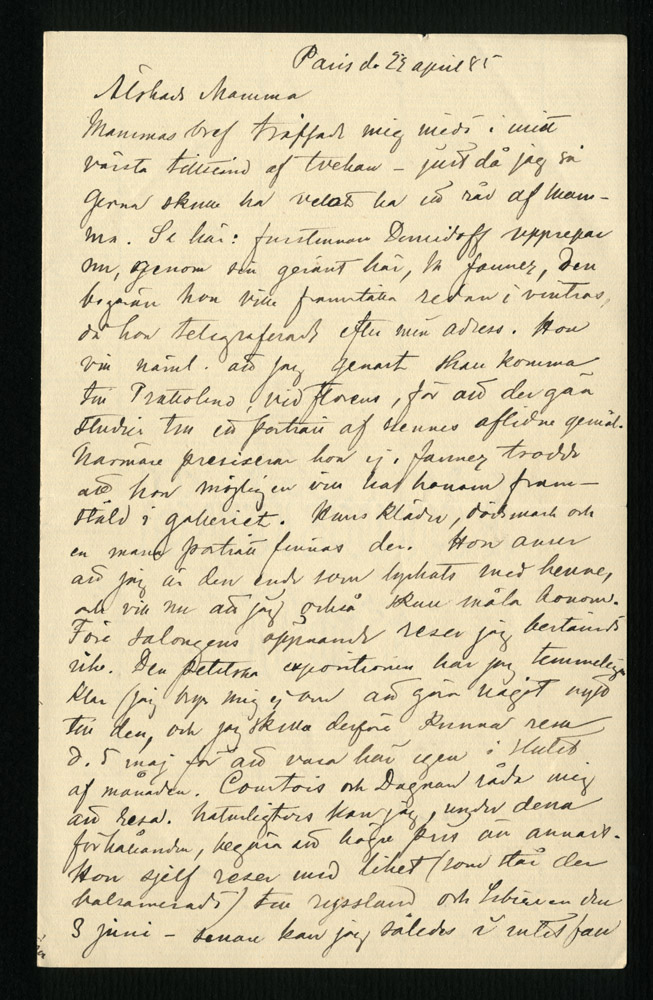 Paris d. 29 april 85
Älskade Mamma
Mammas bref träffade mig midt i mitt
värsta tillstånd af tvekan – just då jag så
gerna skulle ha velat ha ett råd af Mam-
ma. Se här: furstinnan Demidoff upprepar
nu, genom sin gérant här, M Jannez, den
begäran hon ville framställa redan i vintras,
då hon telegraferade efter min adress. Hon
vill näml. att jag genast skall komma
till Pratolino, vid Florens, för att der göra
studier till ett porträtt af hennes aflidne gemål.
Närmare preciserar hon ej. Jannez trodde
att hon möjligen vill ha honom fram-
stäld i galleriet. Hans kläder, dödsmask och
en massa porträtt finnas der. Hon anser
att jag är den ende som lyckats med henne,
och vill nu att jag också skall måla honom.
Före salongens öppnande reser jag bestämdt
icke. Den Petitska expositionen har jag temmeligen
klar (jag bryr mig ej om att göra något nytt
till den, och jag skulle derföre kunna resa
d. 5 maj för att vara här igen i slutet
af månaden. Courtois och Dagnan råda mig
att resa. Naturligtvis kan jag, under dessa
förhållanden, begära ett högre pris än annars.
Hon sjelf reser med liket (som står der
balsameradt) till Ryssland och Siberien den
3 juni – senare kan jag således i intet fall